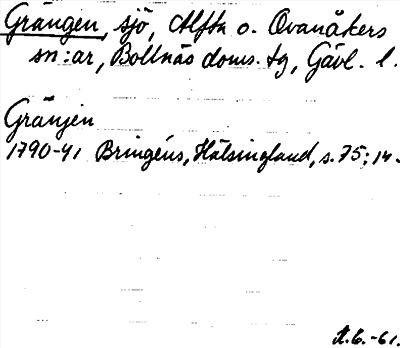 Grängen, sjö, Alfta o. Ovanåkers
sn:ar, Bollnäs doms. tg, Gävl. l.
Gränjen
1790-91 Bringéus, Hälsingland, s. 75; 14.
A.E.-61.